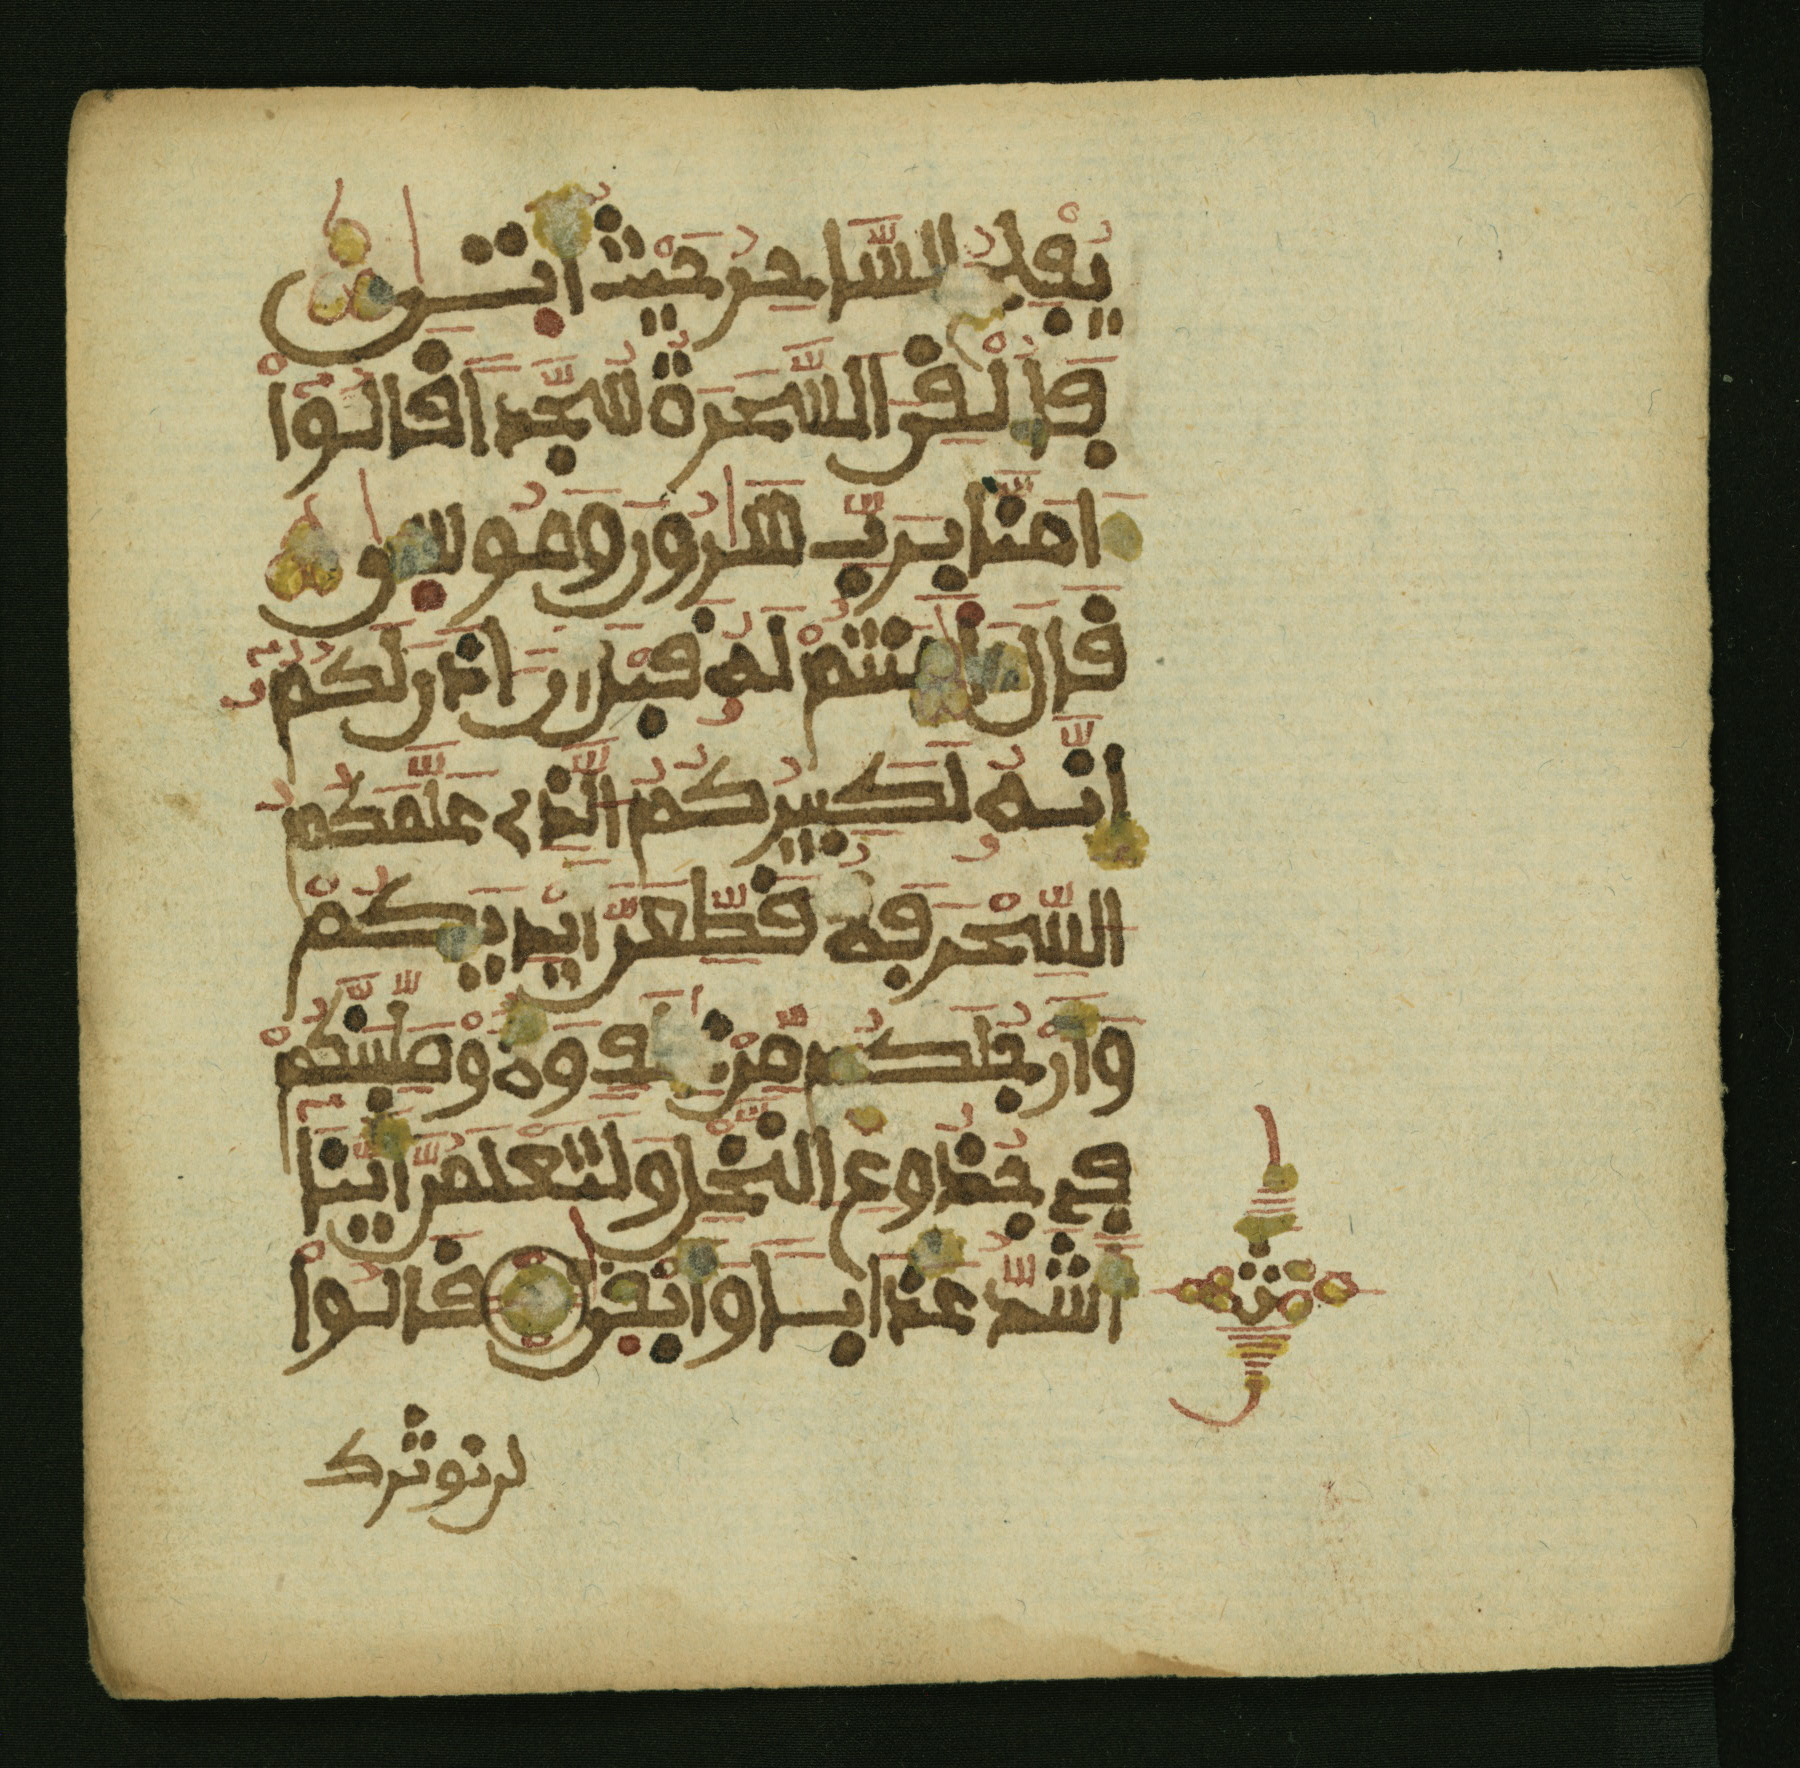 يُفْلِحُ السَّاحِرُ حَيْثُ أَتَىٰ
فَأُلْقِيَ السَّحَرَةُ سُجَّدًا قَالُوا
ءَامَنَّا بِرَبِّ هَٰرُونَ وَمُوسَىٰ
قَالَ ءَأَامَنتُمْ لَهُ قَبْلَ أَنْ ءَاذَنَ لَكُمْ
إِنَّهُ لَكَبِيرُكُمُ الَّذِي عَلَّمَكُمُ
السِّحْرَ فَلَأُقَطِّعَنَّ أَيْدِيَكُمْ
وَأَرْجُلَكُم مِّنْ خِلَٰفٍ وَلَأُوصَلِّبَنَّكُمْ
فِي جُذُوعِ النَّخْلِ وَلَتَعْلَمُنَّ أَيُّنَا
أَشَدُّ عَذَابًا وَأَبْقَىٰ قَالُوا
لن نوثرك